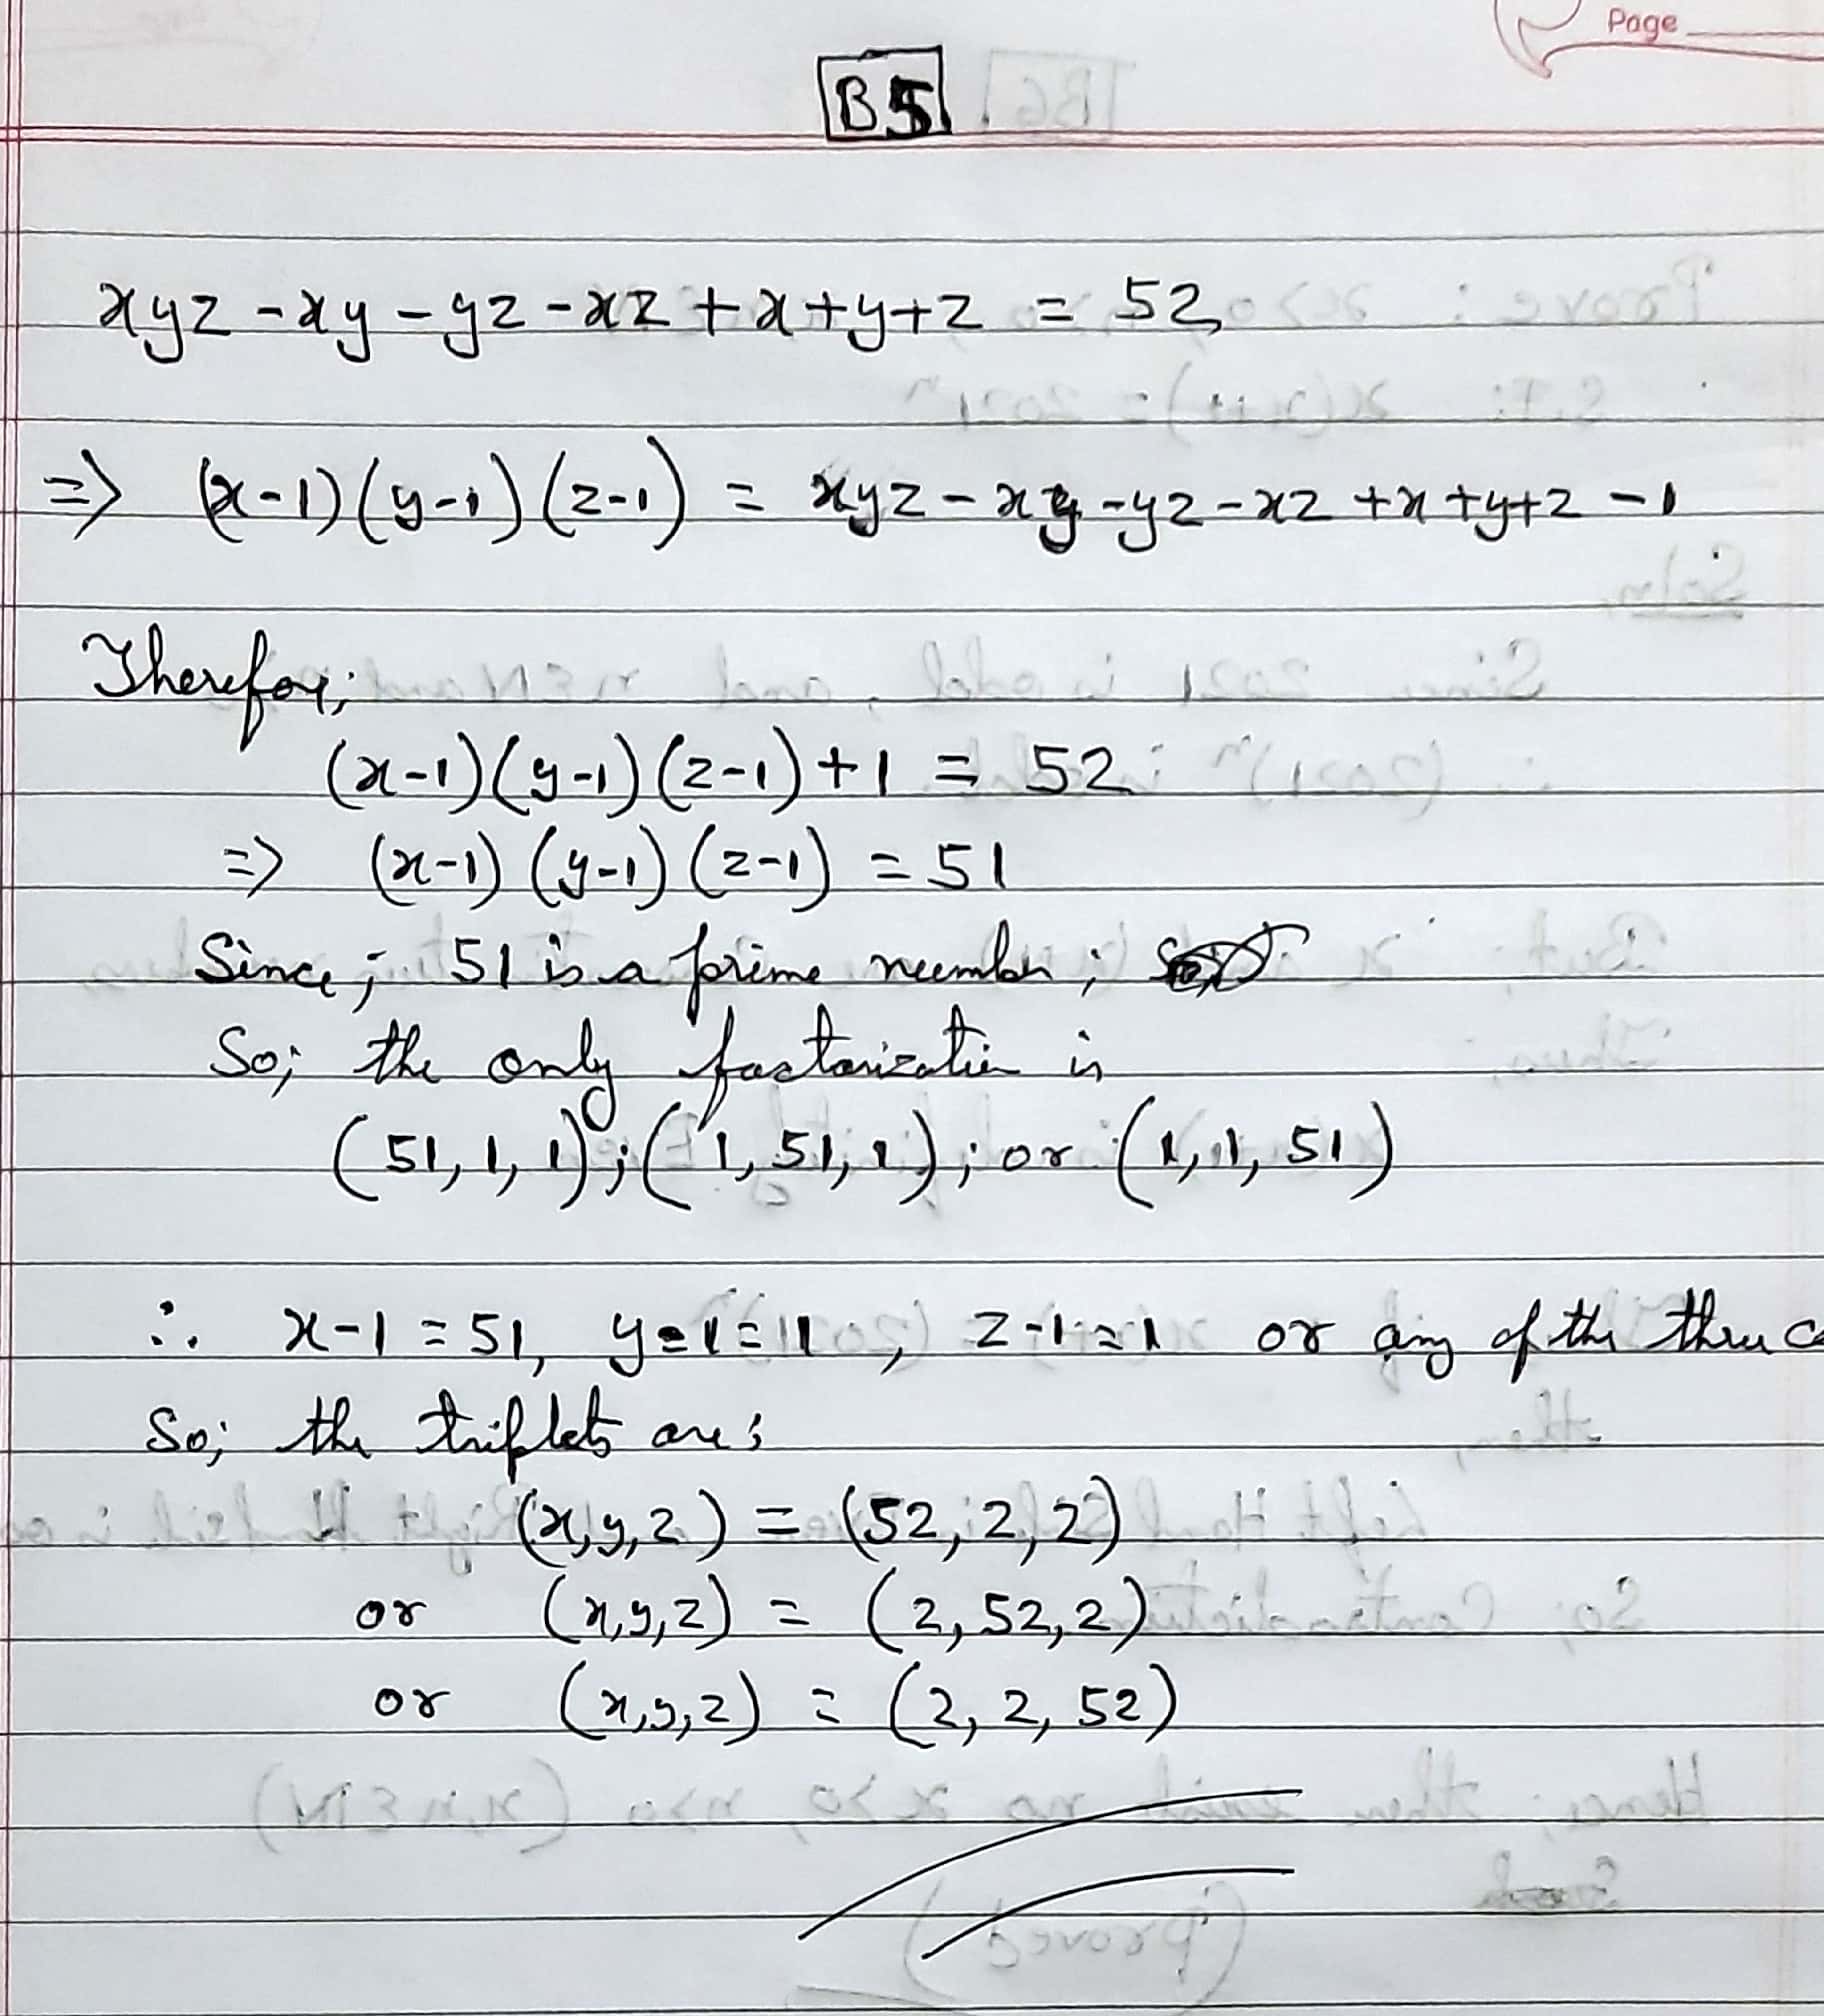 Page
B5
xyz - xy - yz - xz + x + y + z = 52
=> (x-1)(y-1)(z-1) = xyz - xy - yz - xz + x + y + z - 1
Therefore;
(x-1)(y-1)(z-1) + 1 = 52
=> (x-1)(y-1)(z-1) = 51
Since; 51 is a prime number;
So; the only factorization is
(51, 1, 1); (1, 51, 1); or (1, 1, 51)
∴ x-1 = 51, y-1 = 1, z-1 = 1 or any of the three
So; the triplets are:
(x,y,z) = (52, 2, 2)
or (x,y,z) = (2, 52, 2)
or (x,y,z) = (2, 2, 52)